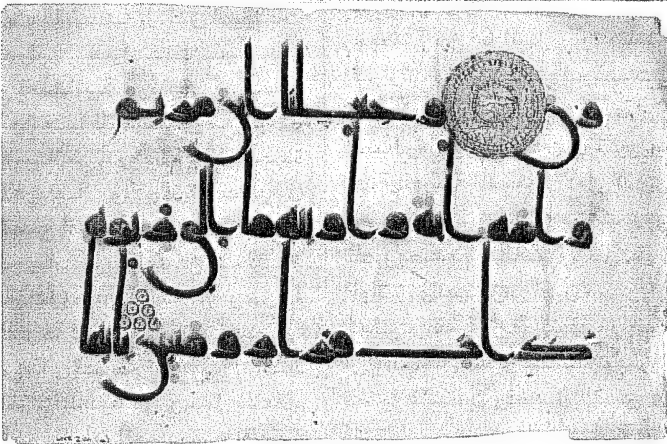 ون وجعلنا ابن مريم
وامه ايه واوينهما الى ربوه
ذات قرار ومعين يايها